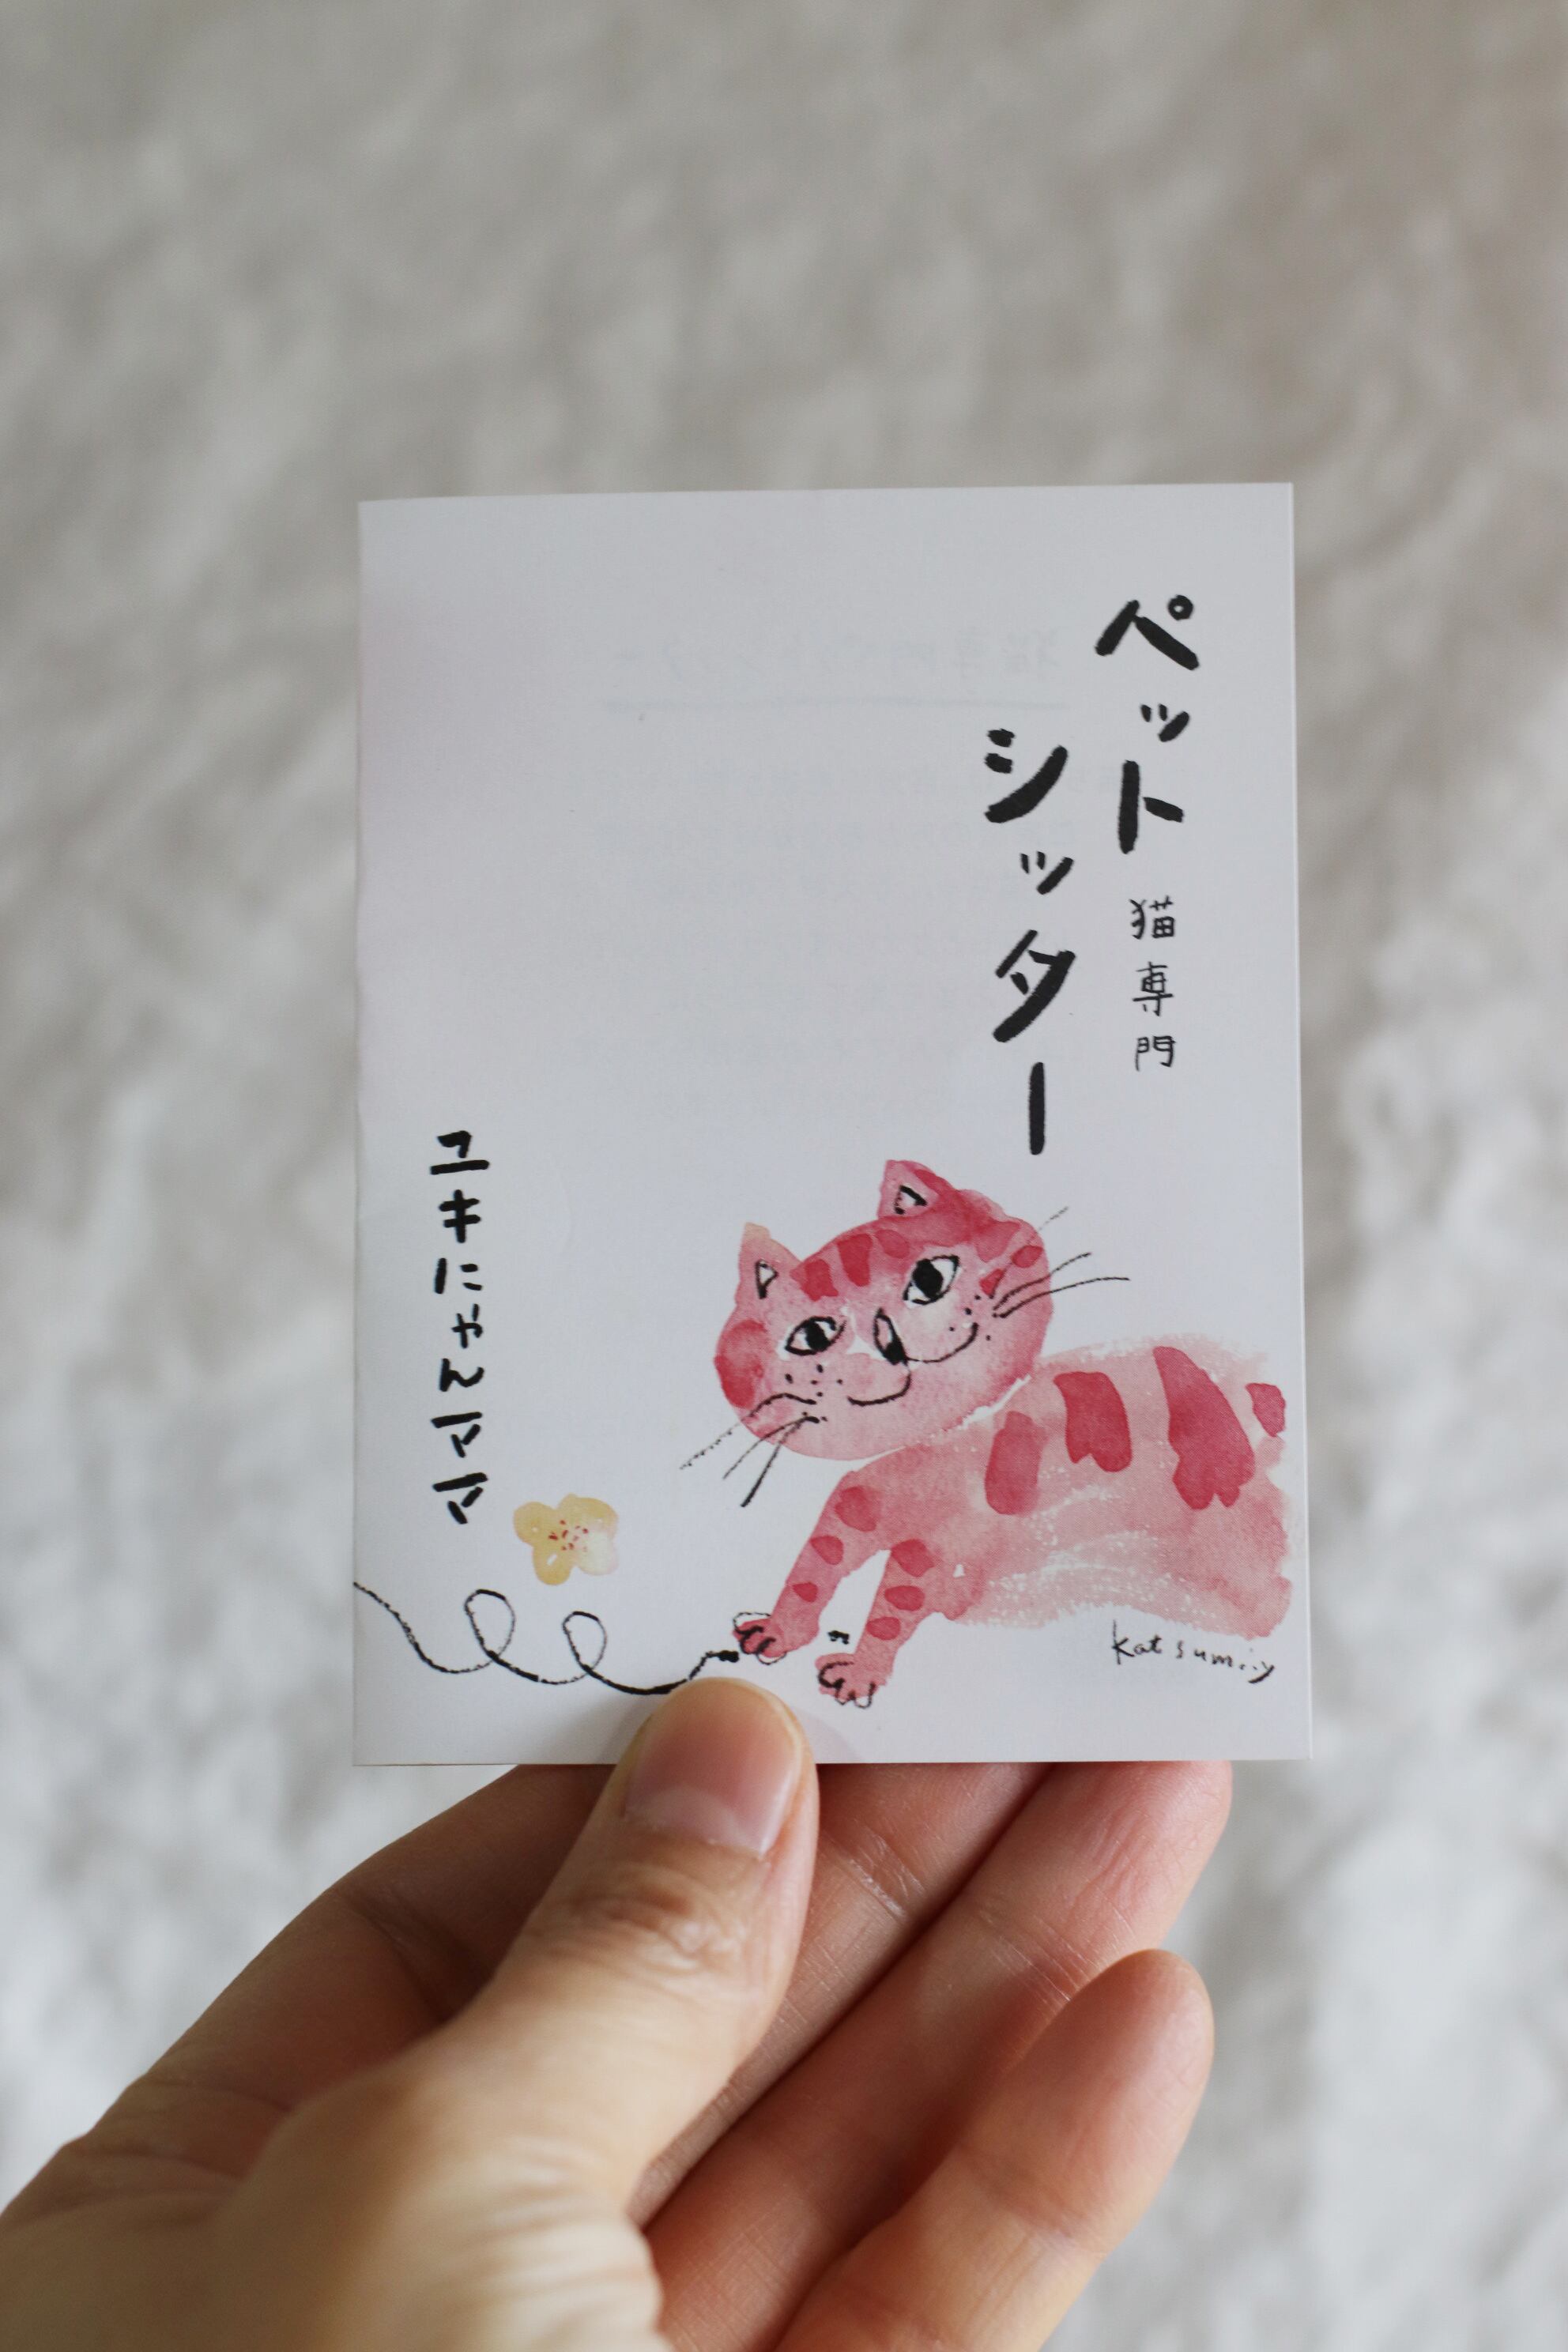 ペット 猫専門
シッター
ユキにゃんママ
katsumiy